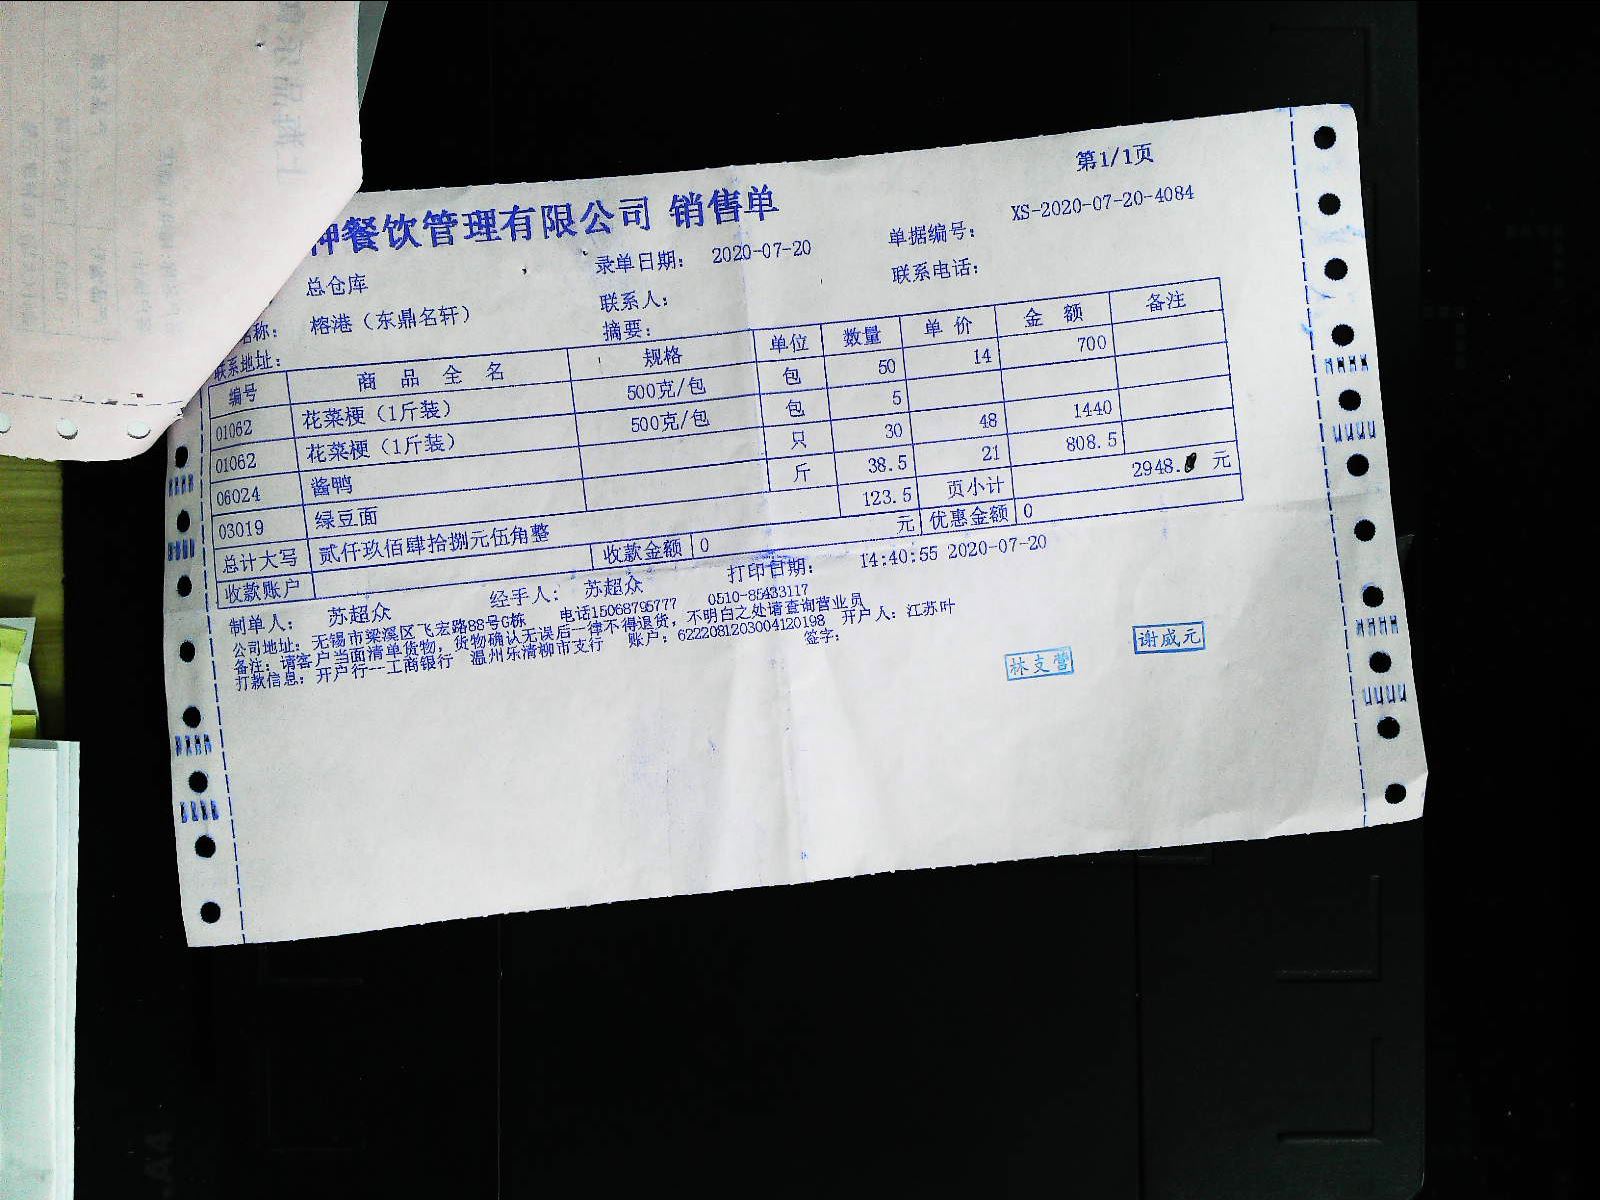 第1/1页
餐饮管理有限公司 销售单
录单日期: 2020-07-20 单据编号: XS-2020-07-20-4084
总仓库 联系人: 联系电话:
称: 榕港（东鼎名轩） 摘要:
联系地址:
编号 商 品 全 名 规格 单位 数量 单 价 金 额 备注
01062 花菜梗（1斤装） 500克/包 包 50 14 700
01062 花菜梗（1斤装） 500克/包 包 5
06024 酱鸭 只 30 48 1440
03019 绿豆面 斤 38.5 21 808.5
总计大写 贰仟玖佰肆拾捌元伍角整 123.5 页小计 2948. 元
收款账户 收款金额 0 元 优惠金额 0
制单人: 苏超众 经手人: 苏超众 打印日期: 14:40:55 2020-07-20
公司地址: 无锡市梁溪区飞宏路88号G栋 电话15068795777 0510-85433117
备注: 请客户当面清单货物, 货物确认无误后一律不得退货, 不明白之处请查询营业员
打款信息: 开户行---工商银行 温州乐清柳市支行 账户: 6222081203004120198 开户人: 江苏叶
签字:
林支营
谢威元